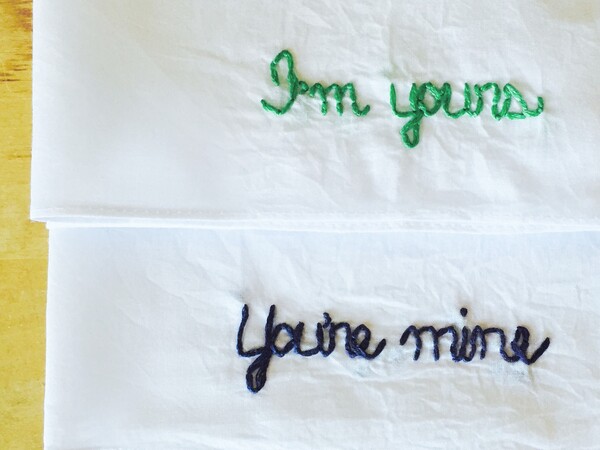 I'm yours
You're mine